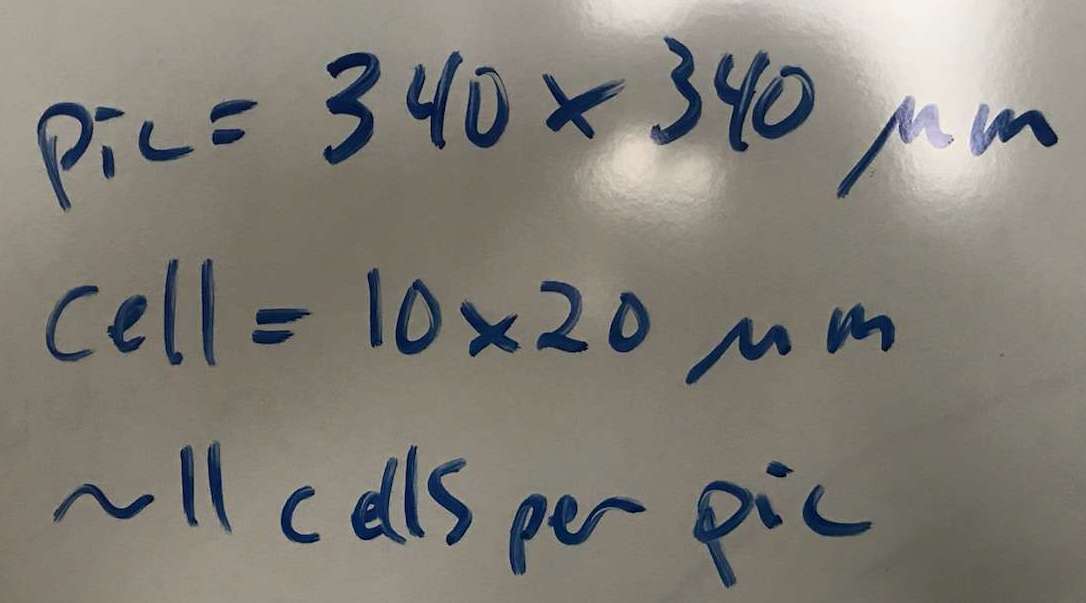 pic = 340 x 340 μm
cell = 10 x 20 μm
~11 cells per pic